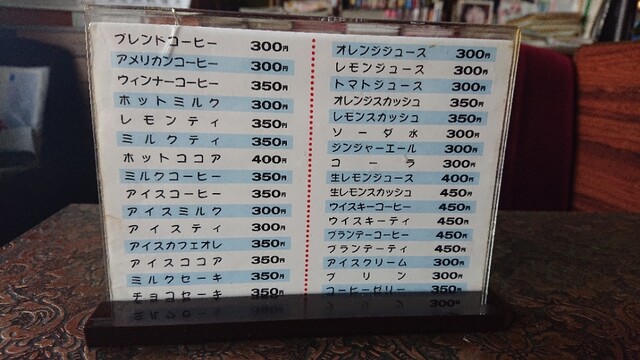 ブレンドコーヒー 300円
アメリカンコーヒー 300円
ウィンナーコーヒー 350円
ホットミルク 300円
レモンティ 350円
ミルクティ 350円
ホットココア 400円
ミルクコーヒー 350円
アイスコーヒー 350円
アイスミルク 300円
アイスティ 300円
アイスカフェオレ 350円
アイスココア 350円
ミルクセーキ 350円
チョコセーキ 350円
オレンジジュース 300円
レモンジュース 300円
トマトジュース 300円
オレンジスカッシュ 350円
レモンスカッシュ 350円
ソーダ水 300円
ジンジャーエール 300円
コーラ 300円
生レモンジュース 400円
生レモンスカッシュ 450円
ウイスキーコーヒー 450円
ウイスキーティ 450円
ブランデーコーヒー 450円
ブランデーティ 450円
アイスクリーム 300円
プリン 300円
コーヒーゼリー 350円